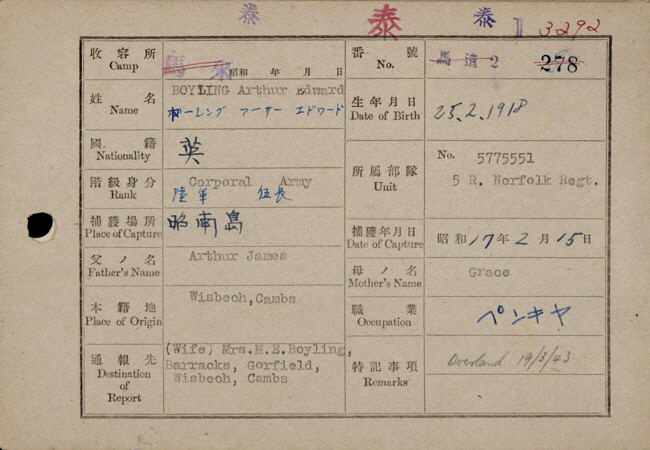 泰 泰 泰 I 3292
收容所
Camp
馬來
昭和 年 月 日
番號
No.
馬遺 2 278
姓名
Name
BOYLING Arthur Edward
ボーレング アーサー エドワード
生年月日
Date of Birth
25.2.1918
國籍
Nationality
英
所屬部隊
Unit
No. 5775551
5 R. Norfolk Regt.
階級身分
Rank
Corporal Army
陸軍 伍長
捕獲場所
Place of Capture
昭南島
捕獲年月日
Date of Capture
昭和17年2月15日
父ノ名
Father's Name
Arthur James
母ノ名
Mother's Name
Grace
本籍地
Place of Origin
Wisbech,Cambs
職業
Occupation
ペンキヤ
通報先
Destination
of
Report
(Wife) Mrs.M.E.Boyling,
Barracks, Gorfield,
Wisbech, Cambs
特記事項
Remarks
Overland 19/3/43